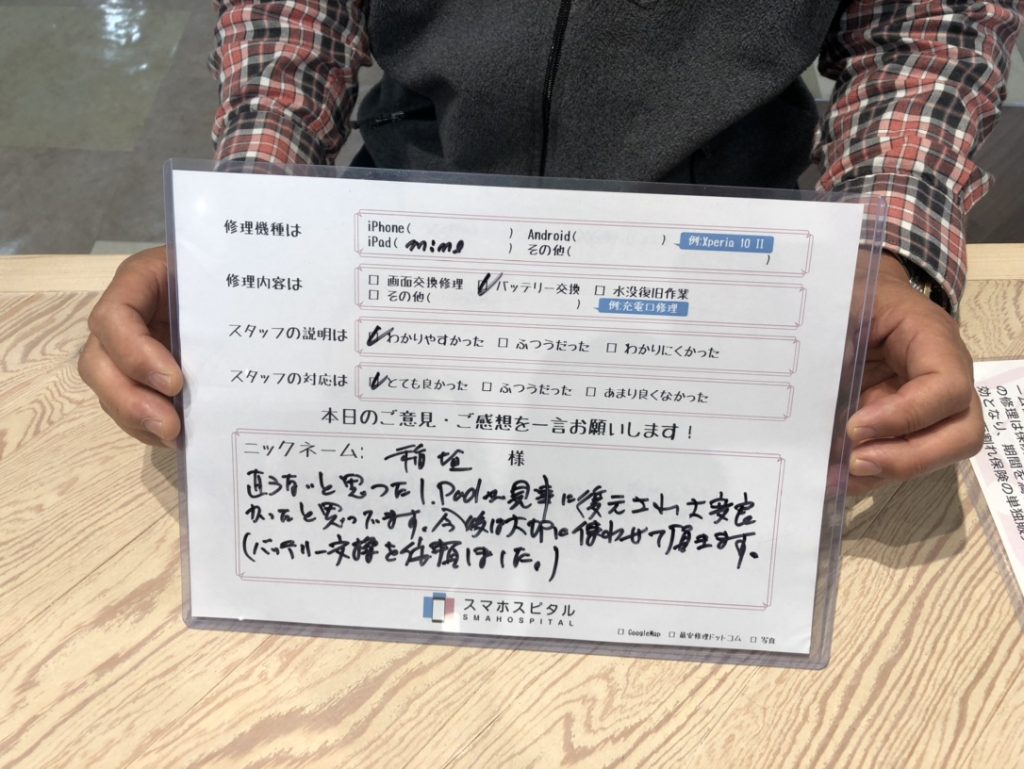 修理機種は
iPhone( ) Android( ) 例:Xperia 10 II
iPad( mini ) その他( )
修理内容は
□ 画面交換修理 ✓バッテリー交換 □ 水没復旧作業
□ その他( ) 例:充電口修理
スタッフの説明は ✓わかりやすかった □ ふつうだった □ わかりにくかった
スタッフの対応は ✓とても良かった □ ふつうだった □ あまり良くなかった
本日のご意見・ご感想を一言お願いします！
ニックネーム: 稲垣 様
直らないと思ったI.Padが見事に復元され大変良
かったと思ってます。今後は大切に使わせて頂きます。
(バッテリー交換を依頼しました。)
スマホスピタル
SMAHOSPITAL
□ GoogleMap □ 最安修理ドットコム □ 写真
の修理は保
効となり、期間を
れ保険の単独